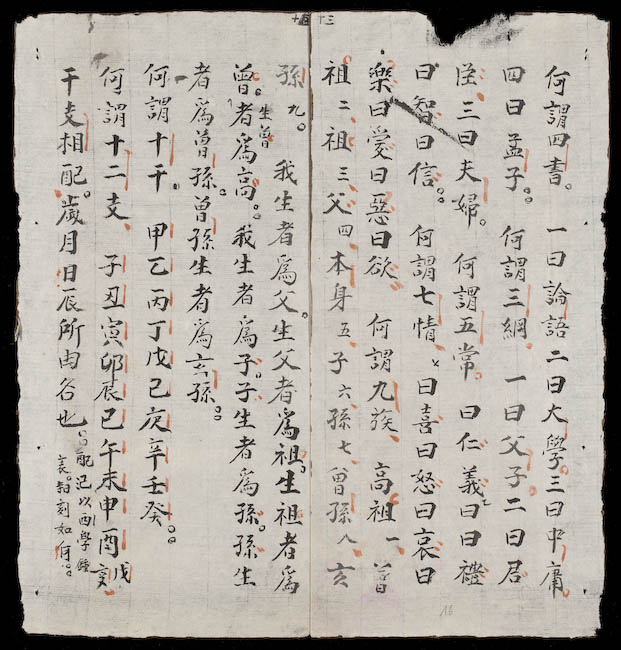 何謂四書。一曰論語二曰大學。三曰中庸。
四曰孟子。何謂三綱。一曰父子。二曰君
臣。三曰夫婦。何謂五常。曰仁義曰禮
曰智曰信。何謂七情。曰喜曰怒曰哀曰
樂曰愛曰惡曰欲。何謂九族。高祖一曾
祖二祖三父四本身五子六孫七曾孫八玄
孫九。我生者為父。生父者為祖。生祖者為
曾。生曾者為高。我生者為子。子生者為孫。孫生
者為曾孫。曾孫生者為玄孫。
何謂十干。甲乙丙丁戊己庚辛壬癸。
何謂十二支、子丑寅卯辰巳午未申酉戌亥
干支相配。歲月日辰所由名也。